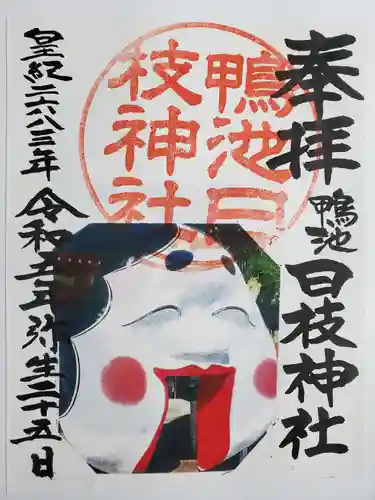 奉拝
鴨池
日枝神社
鴨池日
枝神社
皇紀二六八三年
令和五年弥生二十五日